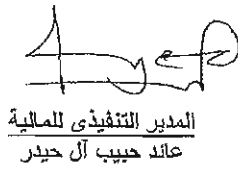 المدير التنفيذى للمالية
عائد حبيب آل حيدر